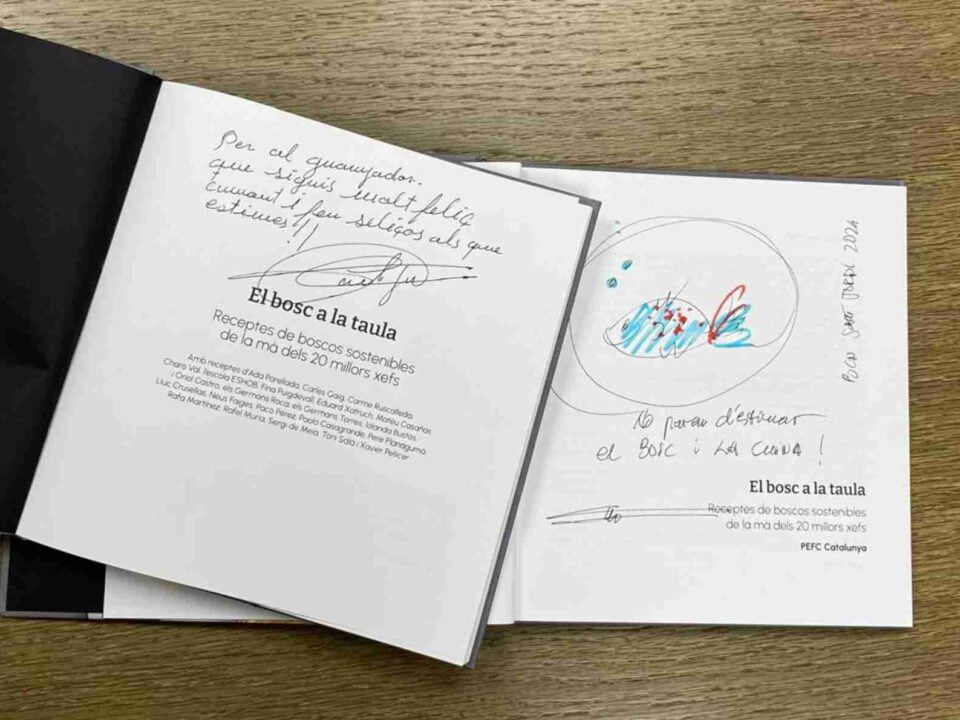 Per al guanyador.
que siguis molt feliç
cuinant i feu feliços als que
estimes!!
El bosc a la taula
Receptes de boscos sostenibles
de la mà dels 20 millors xefs
Amb receptes d'Ada Parellada, Carles Gaig, Carme Ruscalleda
Charo Val, l'escola ESHOB, Fina Puigdevall, Eduard Xatruch, Mateu Casañas
i Oriol Castro, els Germans Roca, els Germans Torres, Iolanda Bustos,
Lluc Crusellas, Neus Faiges, Paco Pérez, Paolo Casagrande, Pere Planagumà,
Rafa Martínez, Rafel Muria, Sergi de Meià, Toni Sala i Xavier Pellicer
BON SANT JORDI 2024
No pareu d'estimar
el BOSC i LA CUINA!
El bosc a la taula
Receptes de boscos sostenibles
de la mà dels 20 millors xefs
PEFC Catalunya